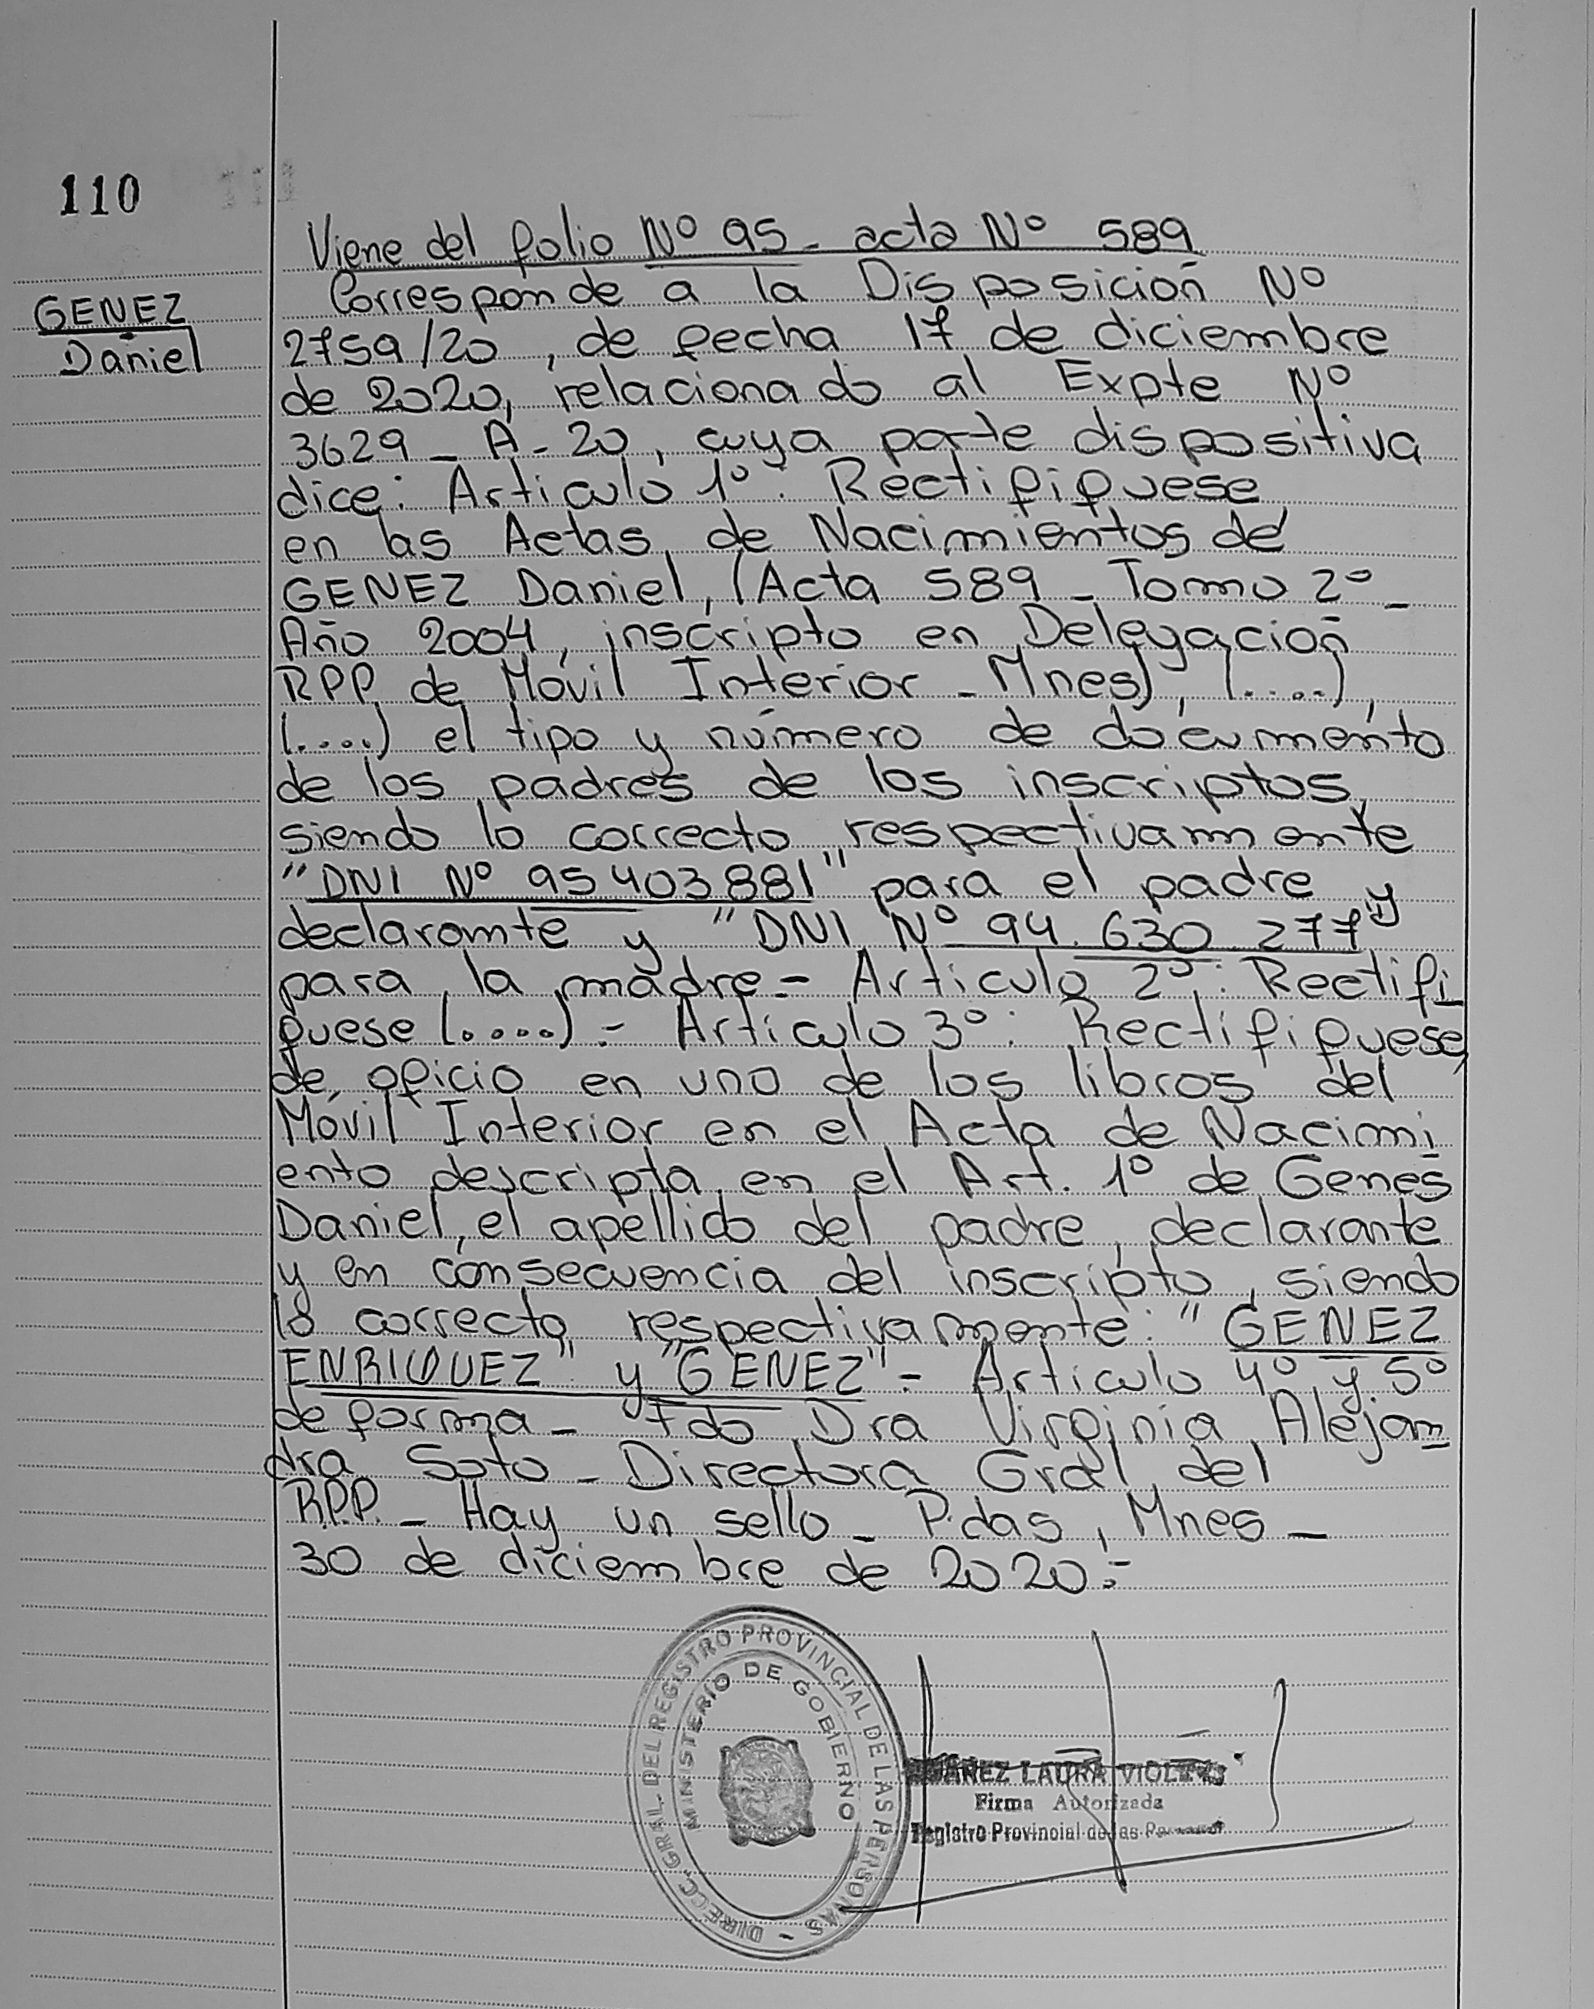 110
Viene del folio Nº 95 - acta Nº 589
GENEZ
Daniel
Corresponde a la Disposición Nº
2759/20, de fecha 17 de diciembre
de 2020, relacionado al Expte Nº
3629 - A - 20, cuya parte dispositiva
dice: Articulo 1º: Rectifiquese
en las Actas de Nacimientos de
GENEZ Daniel, (Acta 589 - Tomo 2º -
Año 2004, inscripto en Delegación
RPP de Móvil Interior - Mnes), (.....),
(.....) el tipo y número de documento
de los padres de los inscriptos,
siendo lo correcto respectivamente
"DNI Nº 95403881" para el padre y
declarante y "DNI Nº 94.630.277"
para la madre - Articulo 2º: Rectifi
quese (.....) - Articulo 3º: Rectifiquese,
de oficio en uno de los libros del
Móvil Interior en el Acta de Nacimi
ento descripta en el Art. 1º de Genes
Daniel, el apellido del padre, declarante
y en consecuencia del inscripto, siendo
lo correcto respectivamente: "GENEZ
ENRIQUEZ" y "GENEZ" - Articulo 4º y 5º
de forma - Fdo Dra Virginia Alejan
dra Soto - Directora Gral del
RPP - Hay un sello - Pdas, Mnes -
30 de diciembre de 2020 -
DIRECC. GRAL. DEL REGISTRO PROVINCIAL DE LAS PERSONAS -
MINISTERIO DE GOBIERNO
LAURA
Firma Autorizada
Registro Provincial de las